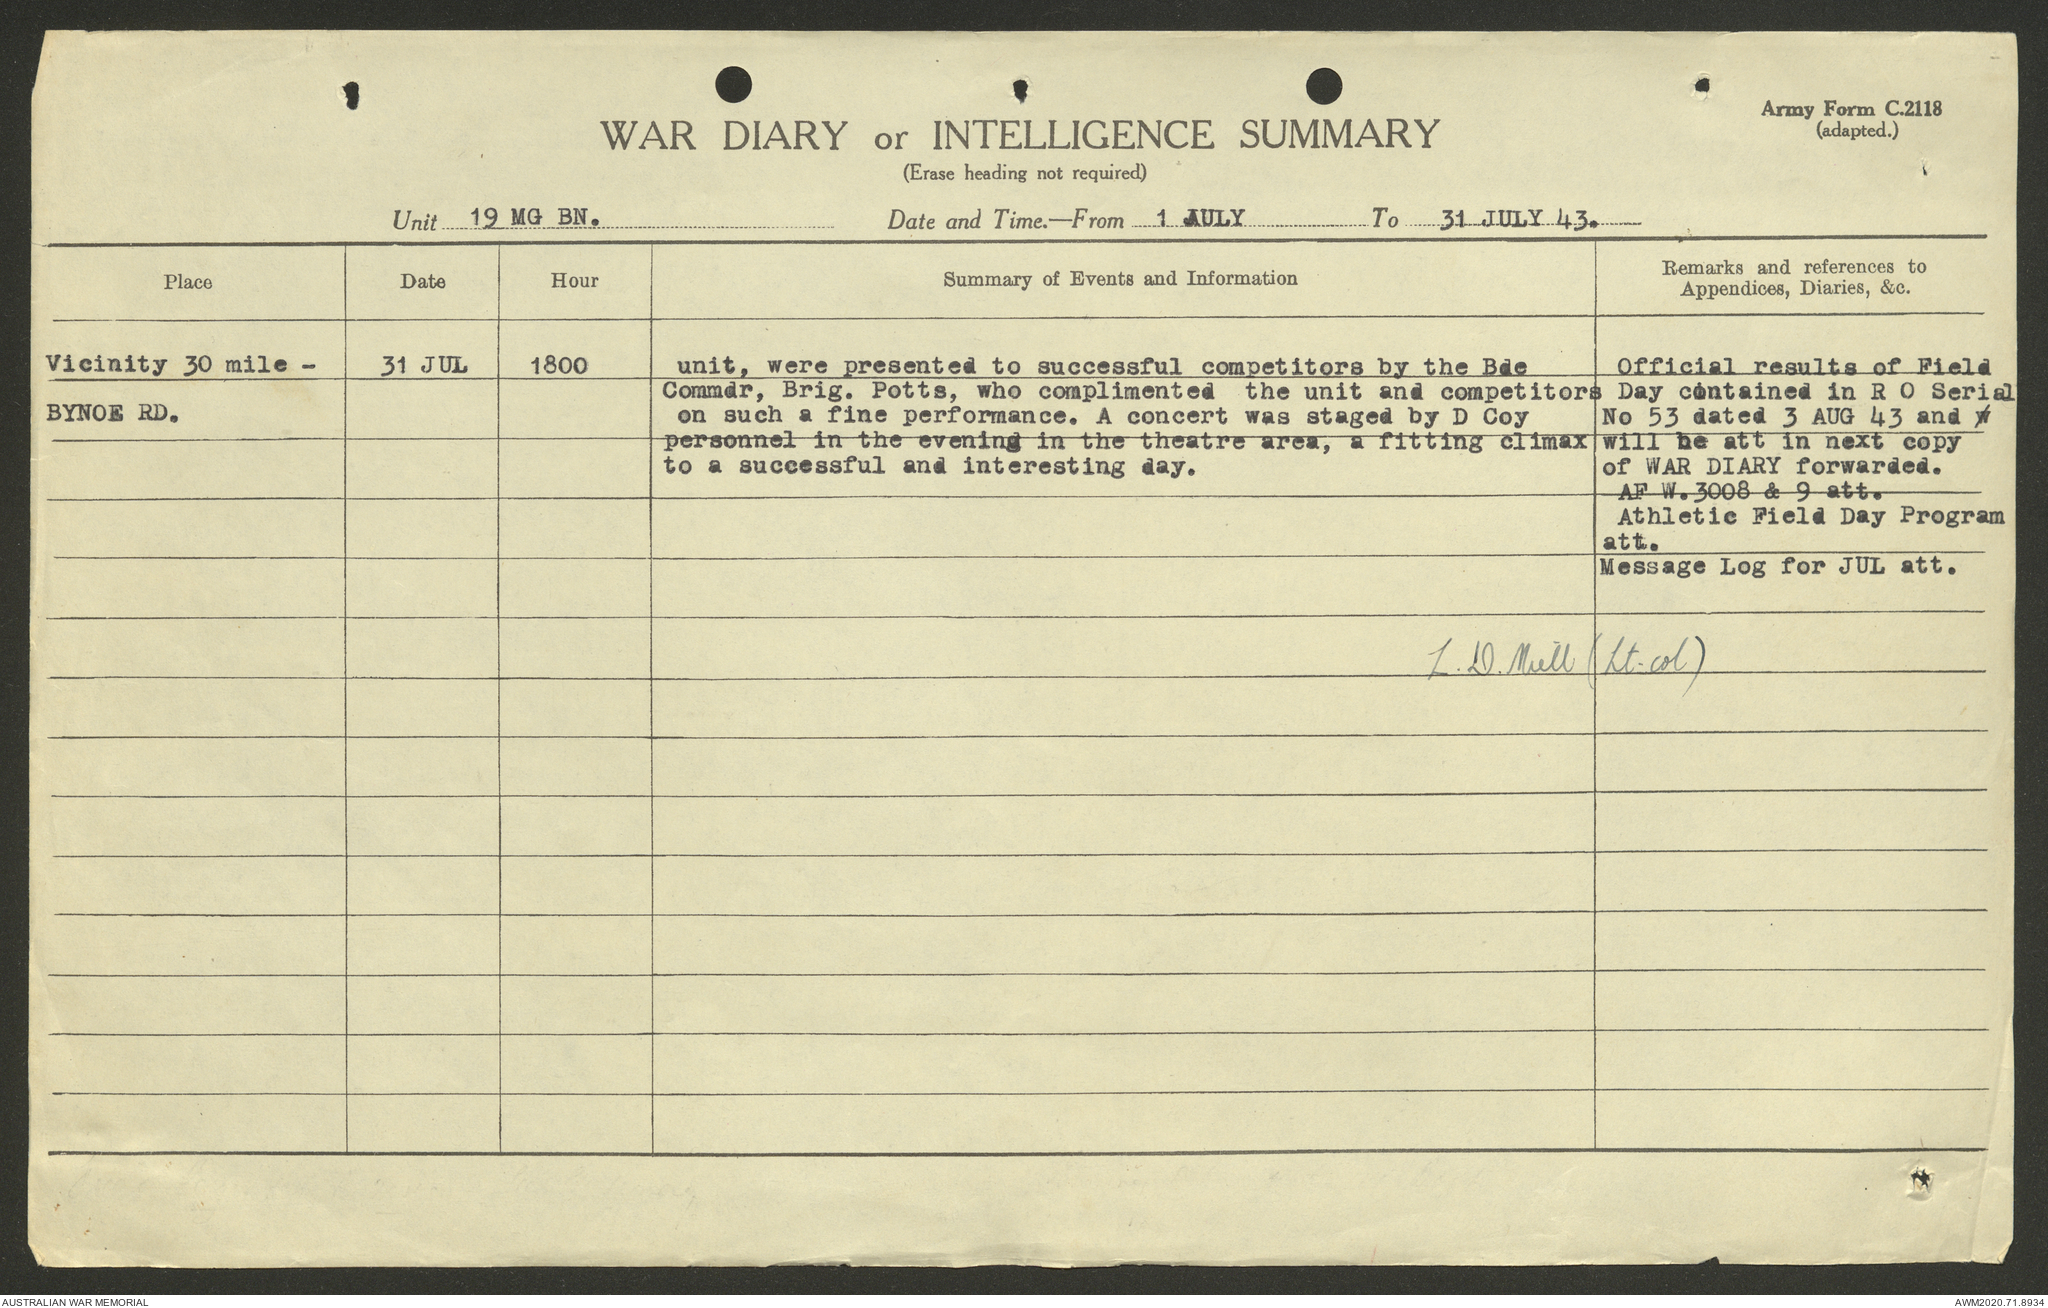 Army Form C.2118
(adapted.)
WAR DIARY or INTELLIGENCE SUMMARY
(Erase heading not required)
Unit 19 MG BN. Date and Time.—From 1 JULY To 31 JULY 43.
Place Date Hour Summary of Events and Information Remarks and references to
Appendices, Diaries, &c.
Vicinity 30 mile -
BYNOE RD.
31 JUL
1800
unit, were presented to successful competitors by the Bde
Commdr, Brig. Potts, who complimented the unit and competitors
on such a fine performance. A concert was staged by D Coy
personnel in the evening in the theatre area, a fitting climax
to a successful and interesting day.
Official results of Field
Day contained in R O Serial
No 53 dated 3 AUG 43 and
will be att in next copy
of WAR DIARY forwarded.
AF W.3008 & 9 att.
Athletic Field Day Program
att.
Message Log for JUL att.
L. D. Miell (Lt-col)
AUSTRALIAN WAR MEMORIAL
AWM2020.71.8934